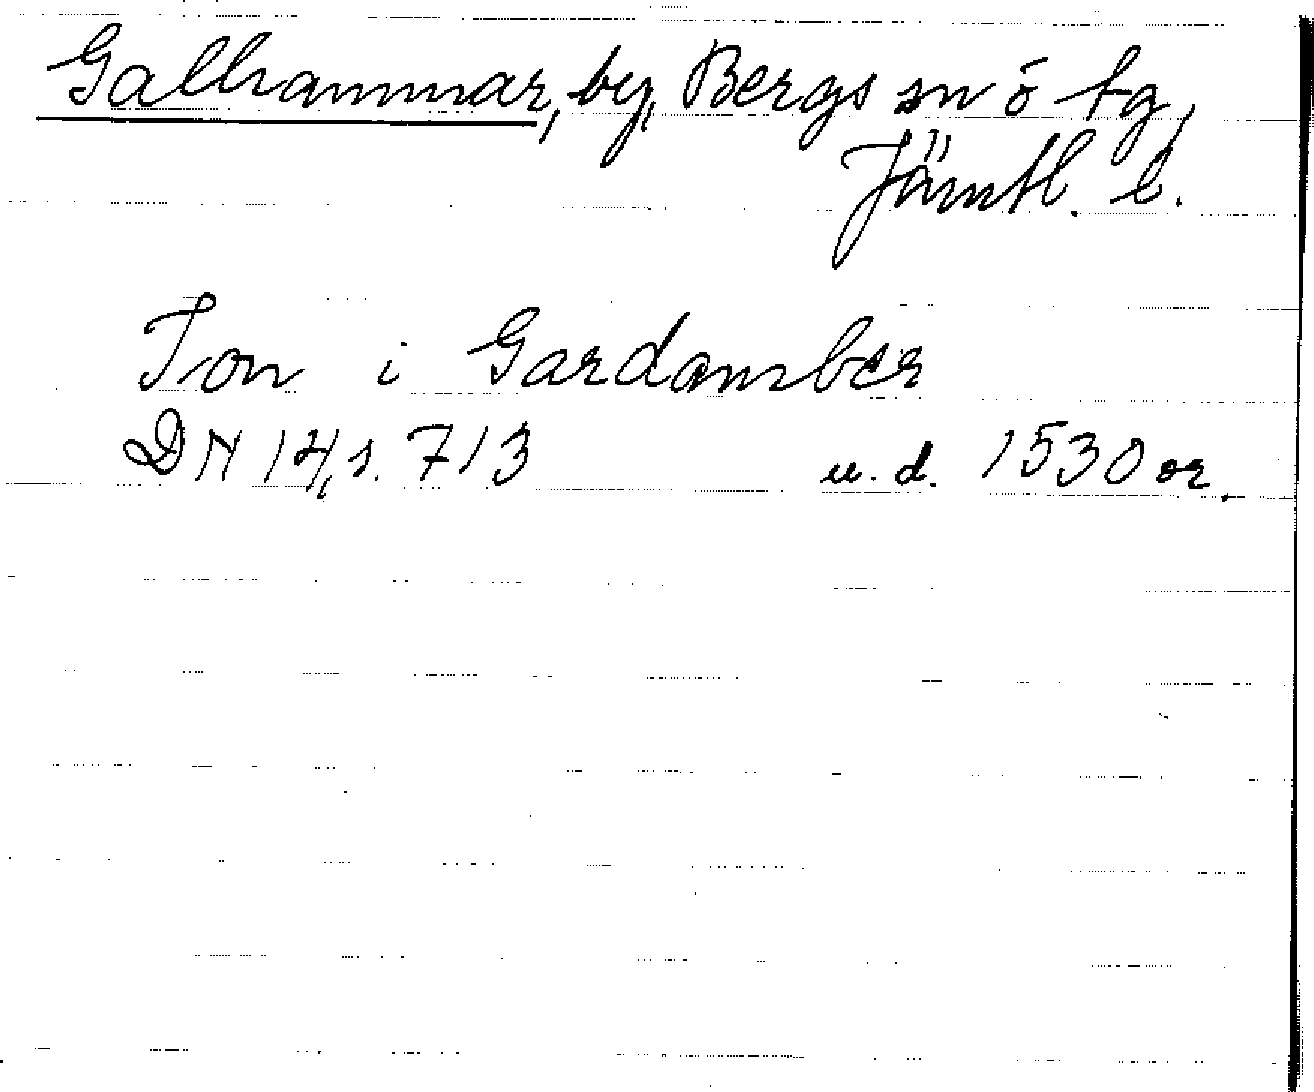 Galhammar, by, Bergs sn o tg,
Jämtl. l.
Jon i Gardamber
DN 14, s. 713 u. d. 1530 or.